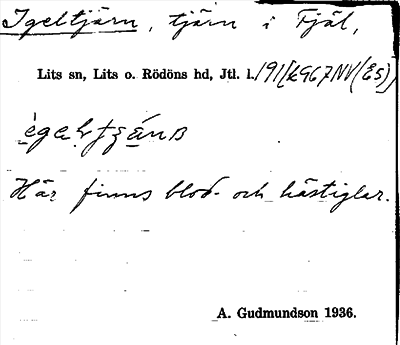 Igeltjärn, tjärn i Fjäl,
Lits sn, Lits o. Rödöns hd, Jtl. l. 191
Här finns blod- och hästiglar.
A. Gudmundson 1936.